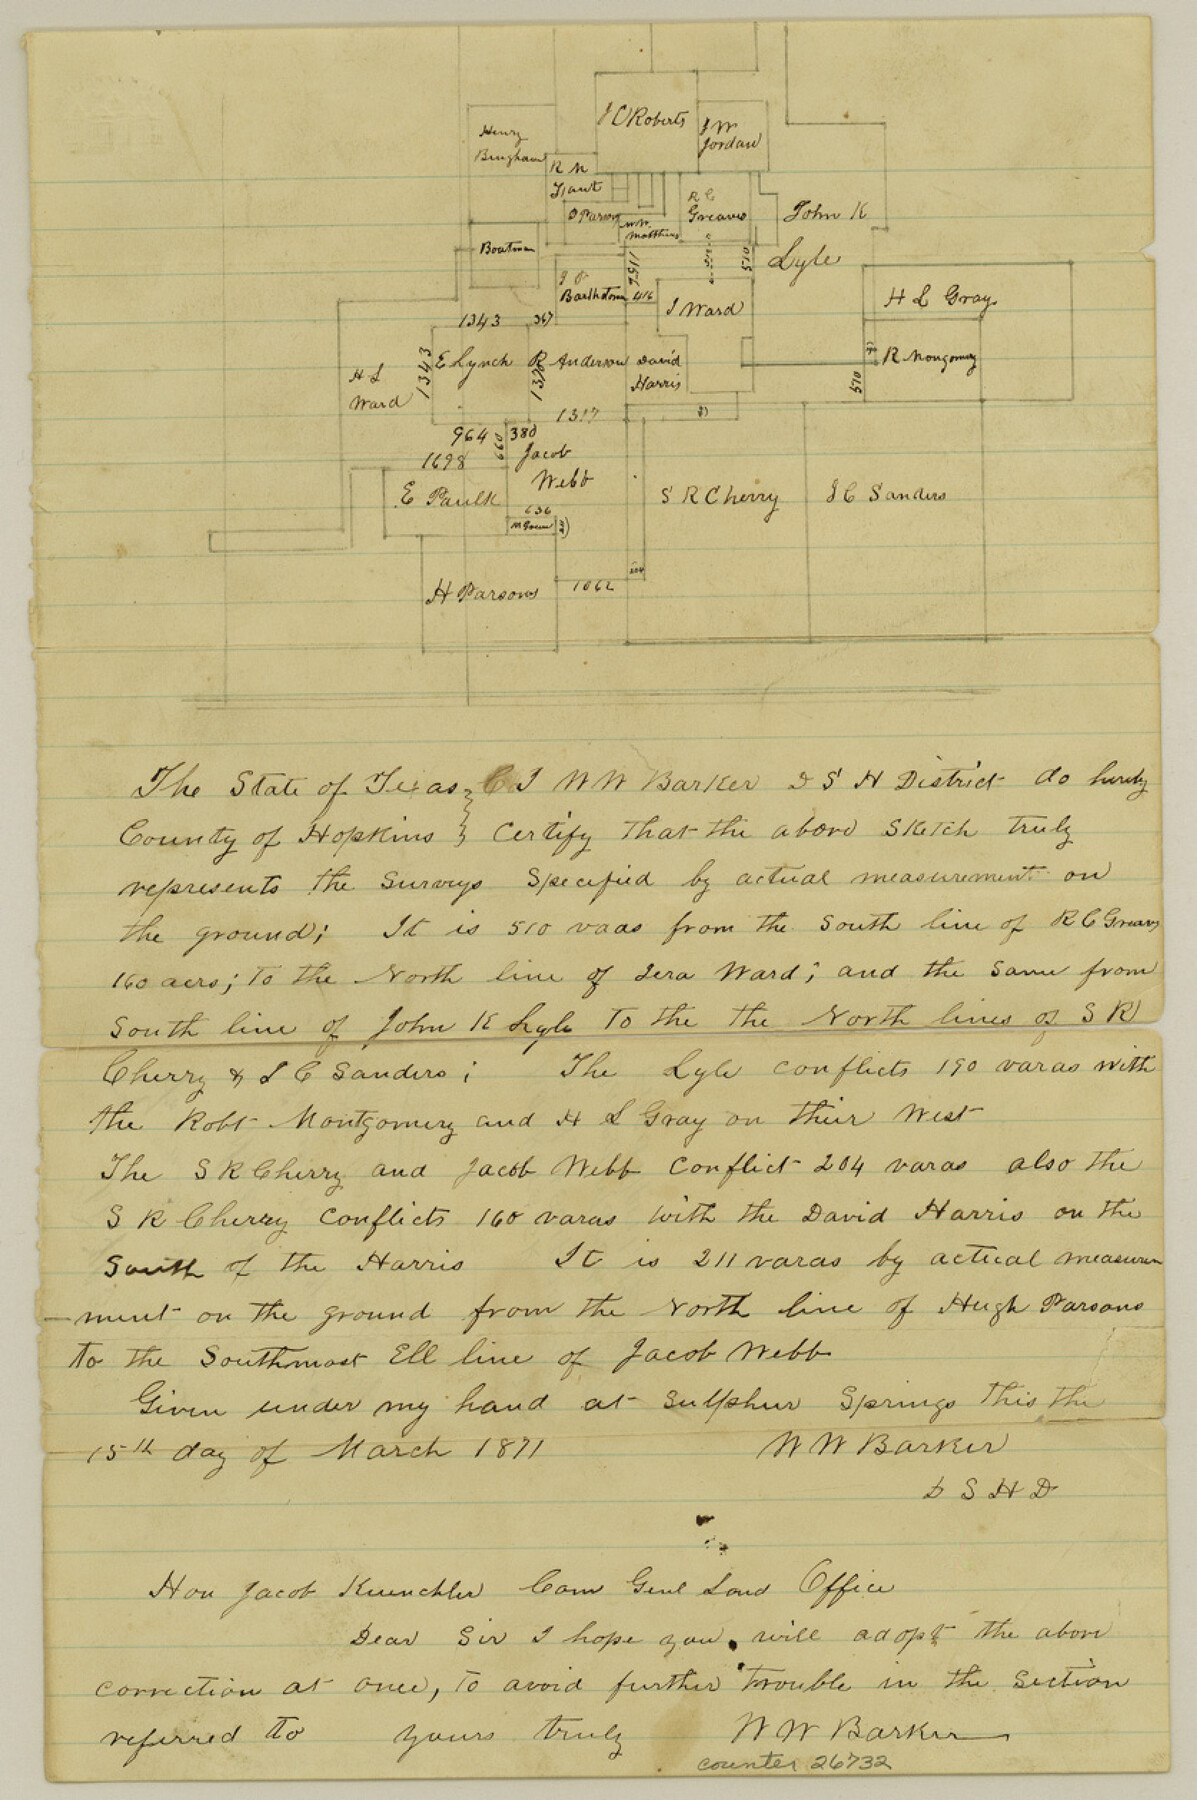 J C Roberts
J W
Jordan
Henry
Bingham
R M
Gant
R C
Greaves
O Parsons
W W.
Matthews
John K
Lyle
Boatman
1156
510
510
J P
Barthstone
416
J Ward
H L Gray
1343
367
E Lynch
1343
R Anderson
David
Harris
R Mongomery
510
H L
Ward
1317
964
380
660
1698
Jacob
Webb
E Paulk
S R Cherry
J C Sanders
636
M Green
211
204
H Parsons
1062
The State of Texas } I W W Barker D S H District do hereby
County of Hopkins } Certify that the above Sketch truly
represents the Surveys Specified by actual measurement on
the ground; It is 510 vaas from the South line of R C Greaves
160 acrs; to the North line of Isra Ward; and the Same from
South line of John K Lyle To the the North lines of S R
Cherry & J C Sanders; The Lyle conflicts 190 varas with
the Robt Montgomery and H L Gray on their West
The S R Cherry and Jacob Webb Conflict 204 varas also the
S R Cherry Conflicts 160 varas with the David Harris on the
South of the Harris It is 211 varas by actual measure
-ment on the ground from the North line of Hugh Parsons
to the Southmost Ell line of Jacob Webb
Given under my hand at Sulphur Springs this the
15th day of March 1871 W W Barker
D S H D
Hon Jacob Kuenchler Com Genl Land Office
Dear Sir I hope you will adopt the above
correction at once, to avoid further trouble in the Section
referred to yours truly W W Barker
counter 26732